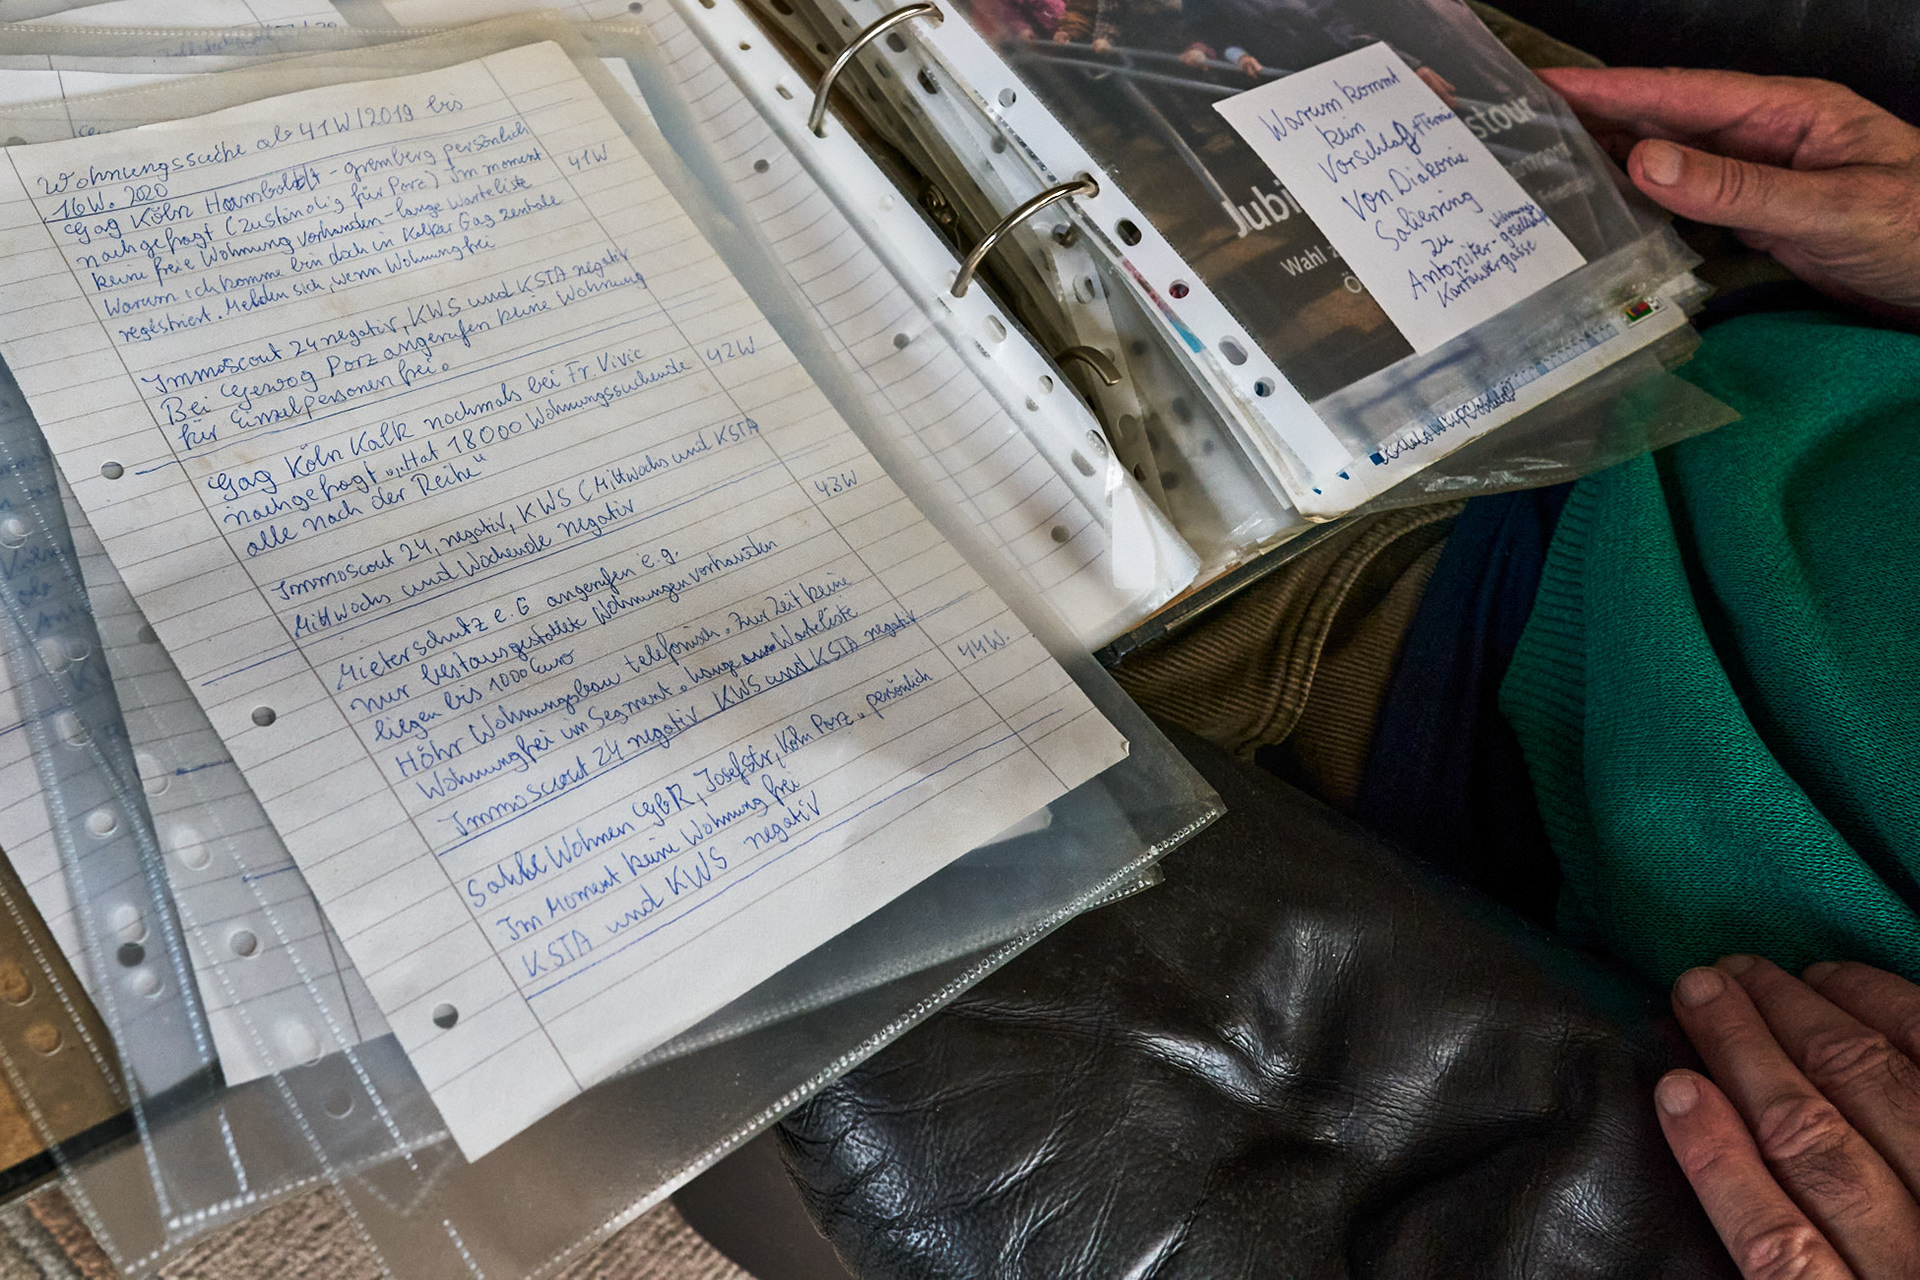 Wohnungssuche ab 41W/2019 bis
16W. 2020
Gag Köln Humboldt-Gremberg persönlich
nachgefragt (zuständig für Porz) Im moment
41W
keine freie Wohnung vorhanden-lange Warteliste
Warum ich komme bin doch in Kalker Gag Zentrale
regestriert. Melden sich, wenn Wohnung frei
Immoscout 24 negativ, KWS und KSTA negativ
Bei Gewog Porz angerufen keine Wohnung
für Einzelpersonen frei.
Gag Köln Kalk nochmals bei Fr. Vivic
42W
nachgefragt „Hat 18000 Wohnungssuchende
alle nach der Reihe"
Immoscout 24, negativ, KWS (Mittwochs und KSTA
Mittwochs und Wochende negativ
43W
Mieterschutz e.G angerufen e.g.
nur bestausgestattete Wohnungen vorhanden
liegen bis 1000 Euro
Höhr Wohnungsbau telefonisch. Zur Zeit keine
Wohnung frei im Segment. Lange Warteliste
Immoscout 24 negativ KWS und KSTA negativ
44W.
Sahle Wohnen GbR, Josefstr, Köln Porz. persönlich
Im Moment keine Wohnung frei
KSTA und KWS negativ
Warum kommt
kein
Vorschlag + Termin
Von Diakonie
Salierring
zu Wohnungs
Antoniter-gesellschaft
Kartäusergasse
Jubi
stour
Wahl